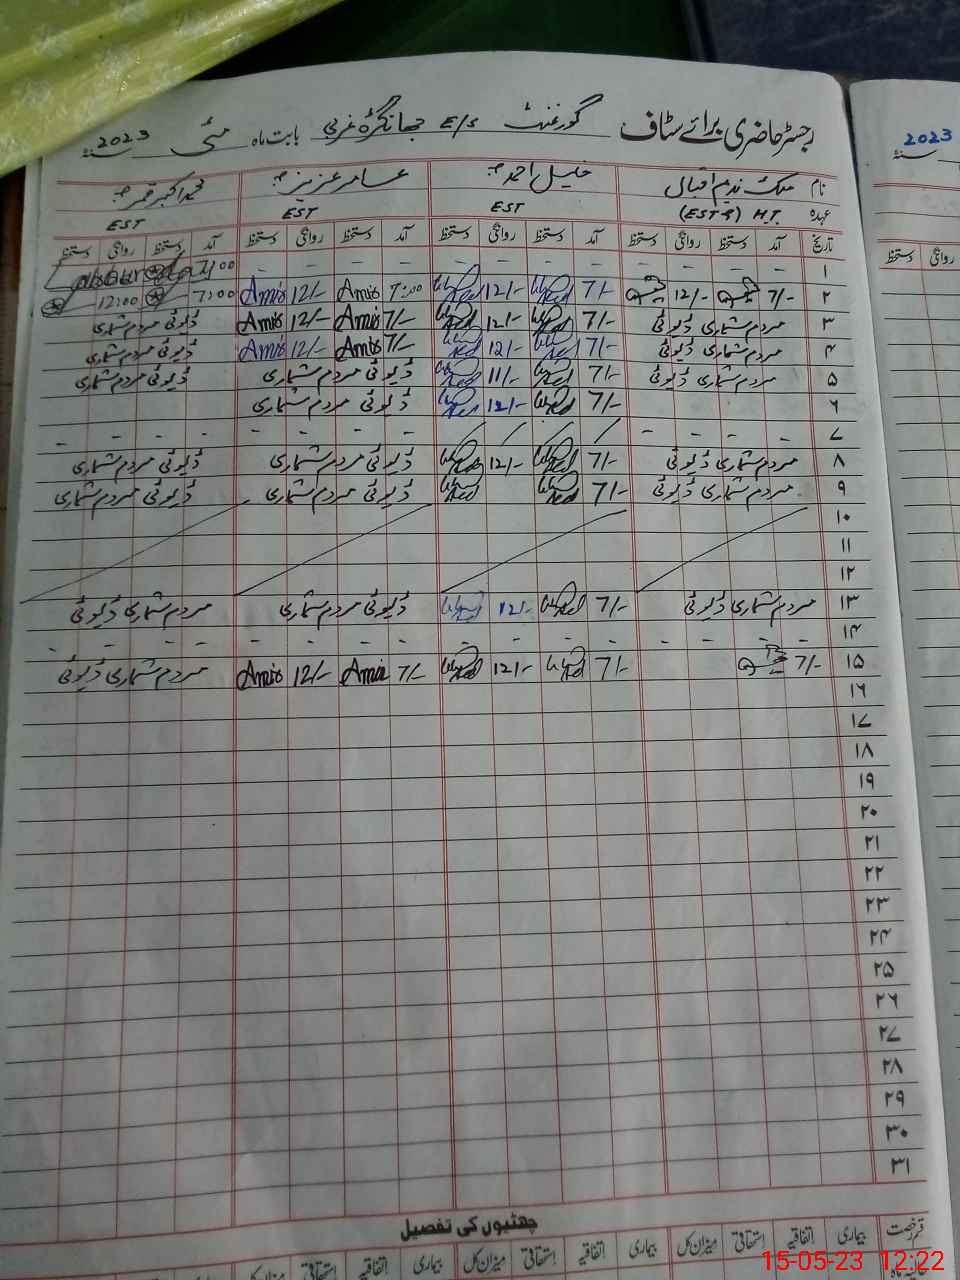 رجسٹر حاضری برائے سٹاف گورنمنٹ E/S جھانگڑہ غربی بابت ماہ مئی سنہ 2023
2023 سنہ
نام ملک ندیم اقبال خلیل احمد عامر عزیز محمد اکبر قمر
عہدہ H.T. (EST) EST EST EST
تاریخ آمد دستخط روانگی دستخط آمد دستخط روانگی دستخط آمد دستخط روانگی دستخط آمد دستخط روانگی دستخط
روانگی دستخط
۱ - - - - - - - - - - - - 7:00
۲ 7/- 12/- 7/- 12/- 7:00 Amir 12/- Amir 7:00 12:00
۳ مردم شماری ڈیوٹی 7/- 12/- 7/- Amir 12/- Amir ڈیوٹی مردم شماری
۴ مردم شماری ڈیوٹی 7/- 12/- 7/- Amir 12/- Amir ڈیوٹی مردم شماری
۵ مردم شماری ڈیوٹی 7/- 11/- ڈیوٹی مردم شماری ڈیوٹی مردم شماری
۶ 7/- 12/- ڈیوٹی مردم شماری
۷ - - - - - - - - - - - -
۸ مردم شماری ڈیوٹی 7/- 12/- ڈیوٹی مردم شماری ڈیوٹی مردم شماری
۹ مردم شماری ڈیوٹی 7/- ڈیوٹی مردم شماری ڈیوٹی مردم شماری
۱۰
۱۱
۱۲
۱۳ مردم شماری ڈیوٹی 7/- 12/- ڈیوٹی مردم شماری مردم شماری ڈیوٹی
۱۴ - - - - - - - - - - - -
۱۵ 7/- 7/- 12/- 7/- Amir 12/- Amir مردم شماری ڈیوٹی
۱۶
۱۷
۱۸
۱۹
۲۰
۲۱
۲۲
۲۳
۲۴
۲۵
۲۶
۲۷
۲۸
۲۹
۳۰
۳۱
چھٹیوں کی تفصیل
قسم رخصت بیماری اتفاقیہ استحقاقی میزان کل بیماری اتفاقیہ استحقاقی میزان کل بیماری اتفاقیہ استحقاقی میزان کل
15-05-23 12:22